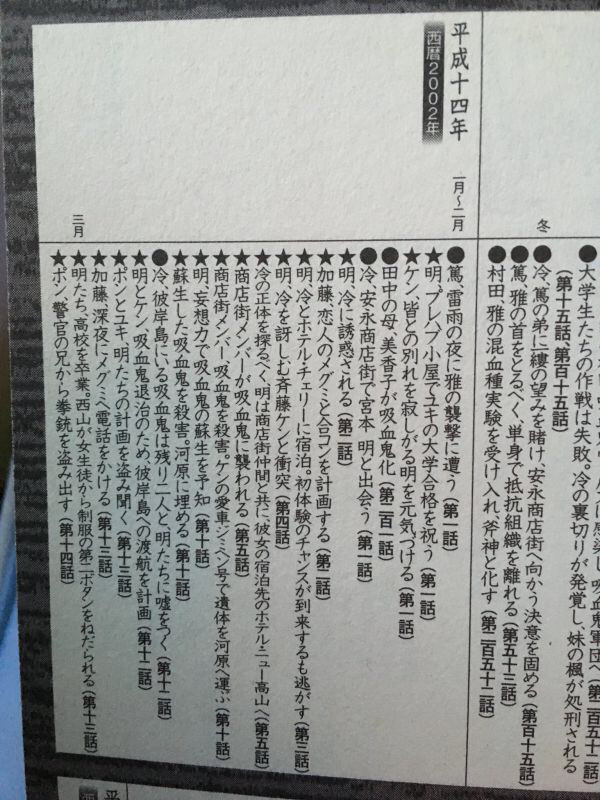 大学生たちの作戦は失敗。冷の裏切りが発覚し、妹の楓が処刑される
(第十五話、第百十五話)
冬
●冷、篤の弟に一縷の望みを賭け、安永商店街へ向かう決意を固める(第百十五話)
●篤、雅の首をとるべく、単身で抵抗組織を離れる(第五十三話)
●村田、雅の混血種実験を受け入れ、斧神と化す(第二百五十二話)
平成十四年
西暦2002年
一月〜二月
●篤、雷雨の夜に雅の襲撃に遭う(第一話)
★明、プレハブ小屋でユキの大学合格を祝う(第一話)
★ケン、皆との別れを寂しがる明を元気づける(第一話)
●田中の母、美香子が吸血鬼化(第二百一話)
●冷、安永商店街で宮本明と出会う(第一話)
★明、冷に誘惑される(第二話)
★加藤、恋人のメグミと合コンを計画する(第二話)
★明、冷とホテル・チェリーに宿泊。初体験のチャンスが到来するも逃がす(第三話)
★明、冷を訝しむ斉藤ケンと衝突(第四話)
★冷の正体を探るべく、明は商店街仲間と共に、彼女の宿泊先のホテルニュー高山へ(第五話)
★商店街メンバーが吸血鬼に襲われる(第五話)
★商店街メンバー、吸血鬼を殺害。ケンの愛車ジェベン号で遺体を河原へ運ぶ(第十話)
★明、妄想力で吸血鬼の蘇生を予知(第十話)
★蘇生した吸血鬼を殺害。河原に埋める(第十一話)
●冷、彼岸島にいる吸血鬼は残り二人と、明たちに嘘をつく(第十二話)
★明とケン、吸血鬼退治のため、彼岸島への渡航を計画(第十二話)
★ポンとユキ、明たちの計画を盗み聞く(第十三話)
★加藤、深夜にメグミへ電話をかける(第十三話)
三月
★明たち、高校を卒業。西山が女生徒から制服の第二ボタンをねだられる(第十三話)
★ポン、警官の兄から拳銃を盗み出す(第十四話)
平
西